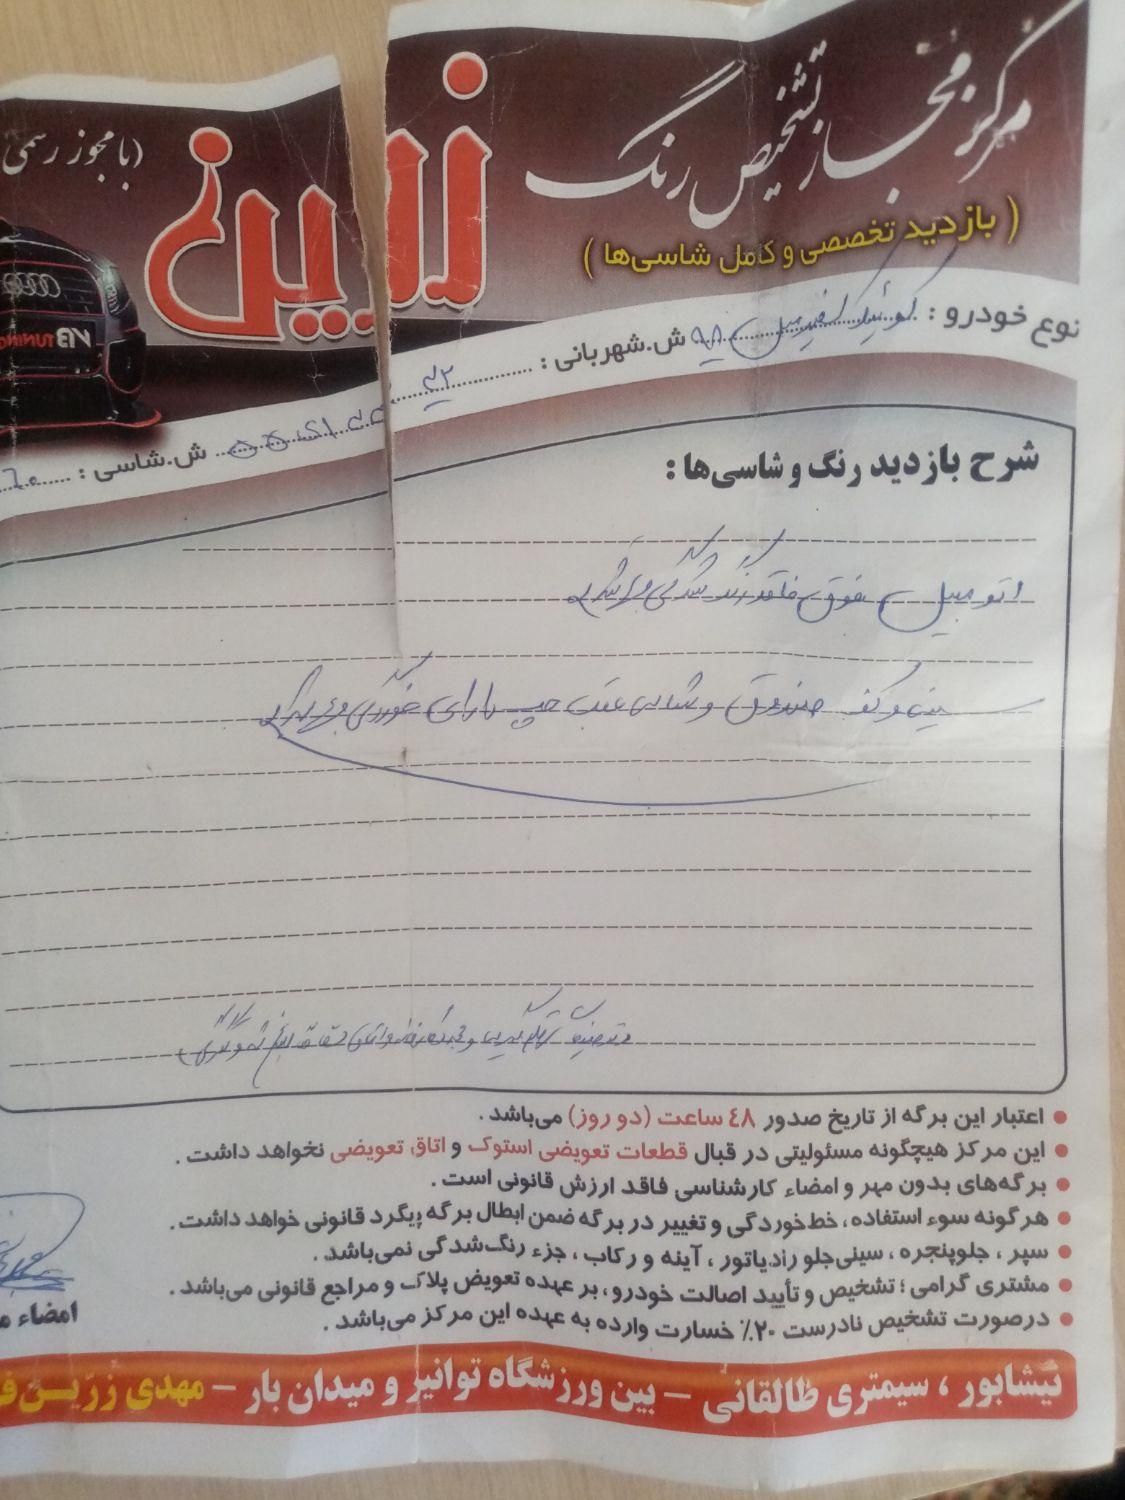 مرکز مجاز تشخیص رنگ
زرین
(با مجوز رسمی
( بازدید تخصصی و کامل شاسی‌ها )
نوع خودرو : کوئیک سفید مدل ۹۹ ش.شهربانی :
ش.شاسی :
شرح بازدید رنگ و شاسی‌ها :
اتومبیل فوق فاقد رنگ شدگی می باشد
سینی و کف صندوق و شاسی عقب چپ دارای خوردگی می باشد
اعتبار این برگه از تاریخ صدور ٤٨ ساعت (دو روز) می‌باشد .
این مرکز هیچگونه مسئولیتی در قبال قطعات تعویضی استوک و اتاق تعویضی نخواهد داشت .
برگه‌های بدون مهر و امضاء کارشناسی فاقد ارزش قانونی است .
هرگونه سوء استفاده، خط‌خوردگی و تغییر در برگه ضمن ابطال برگه پیگرد قانونی خواهد داشت .
سپر ، جلوپنجره ، سینی‌جلو رادیاتور ، آینه و رکاب ، جزء رنگ‌شدگی نمی‌باشد .
مشتری گرامی ؛ تشخیص و تأیید اصالت خودرو، بر عهده تعویض پلاک و مراجع قانونی می‌باشد .
درصورت تشخیص نادرست ۲۰٪ خسارت وارده به عهده این مرکز می‌باشد .
امضاء
نیشابور ، سیمتری طالقانی – بین ورزشگاه توانیر و میدان بار – مهدی زرّیـن